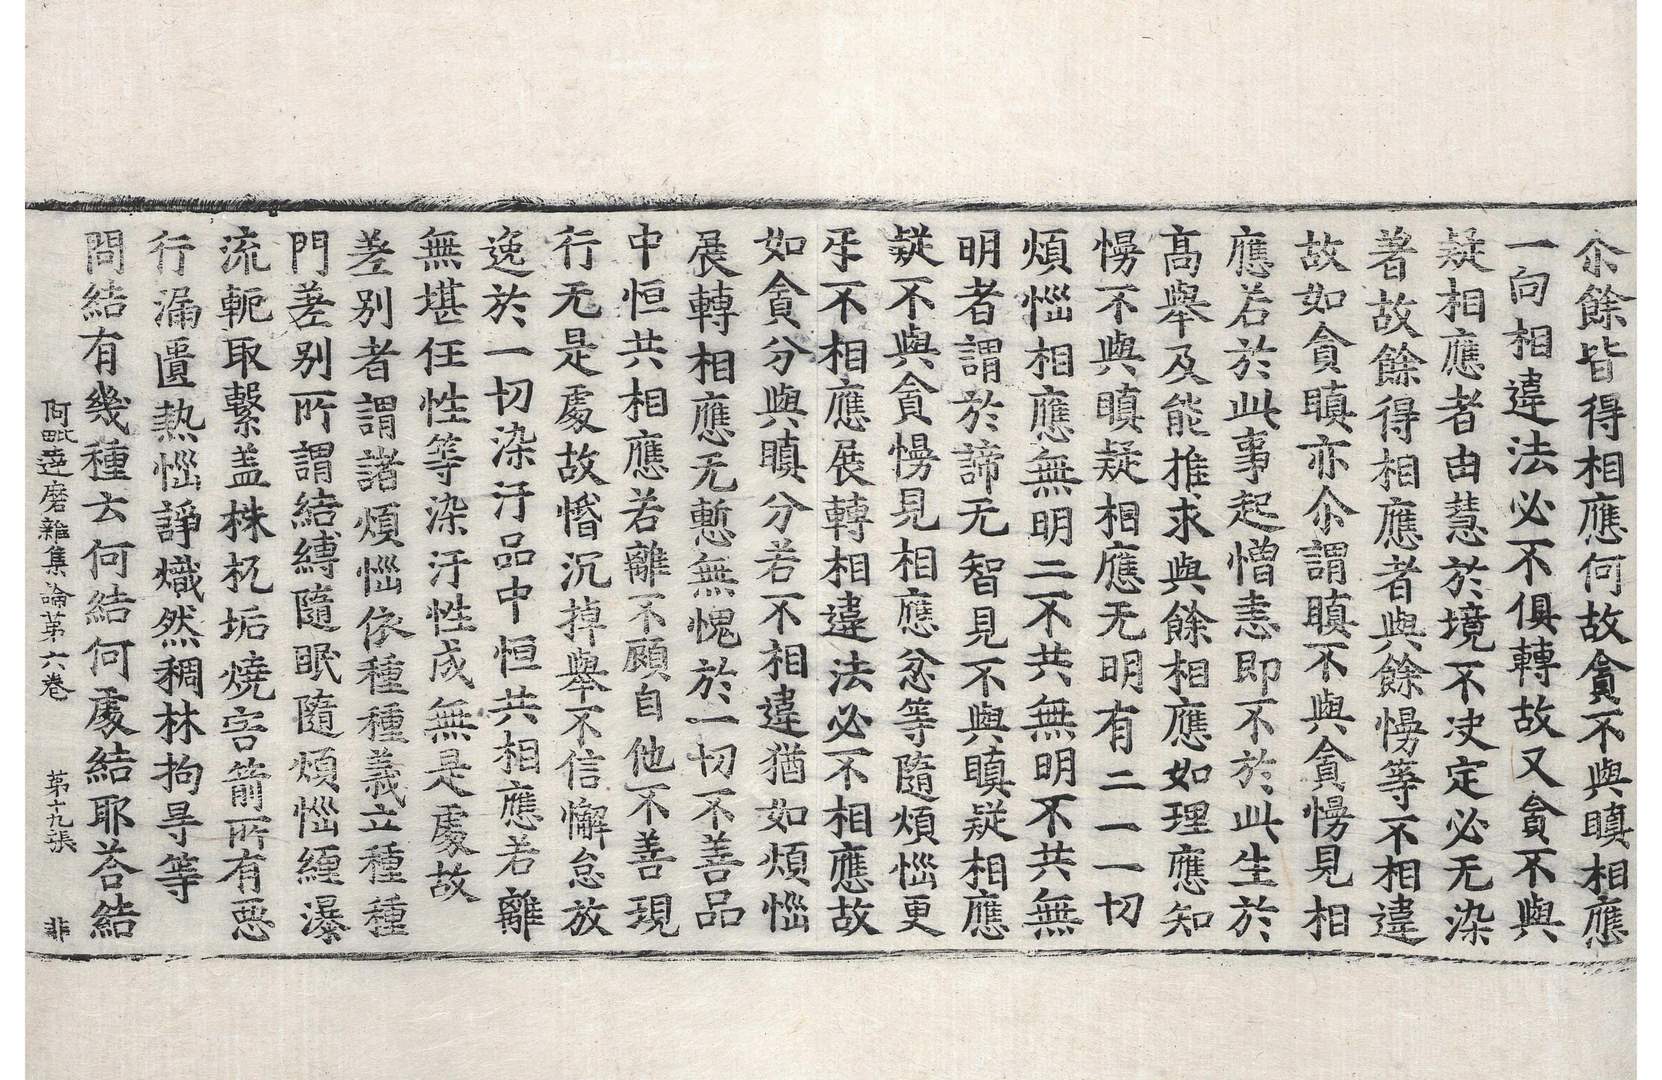 尒餘皆得相應何故貪不與瞋相應
一向相違法必不俱轉故又貪不與
疑相應者由慧於境不决定必无染
著故餘得相應者與餘慢等不相違
故如貪瞋亦尒謂瞋不與貪慢見相
應若於此事起憎恚即不於此生於
高舉及能推求與餘相應如理應知
慢不與瞋疑相應无明有二一一切
煩惱相應無明二不共無明不共無
明者謂於諦无智見不與瞋疑相應
疑不與貪慢見相應忿等隨煩惱更
㸦不相應展轉相違法必不相應故
如貪分與瞋分若不相違猶如煩惱
展轉相應无慙無愧於一切不善品
中恒共相應若離不顧自他不善現
行无是處故惛沉掉舉不信懈怠放
逸於一切染汙品中恒共相應若離
無堪任性等染汙性成無是處故
差別者謂諸煩惱依種種義立種種
門差別所謂結縛隨眠隨煩惱纏瀑
流軛取繫盖株杌垢燒害箭所有惡
行漏匱熱惱諍熾然稠林拘㝵等
問結有幾種去何結何處結耶荅結
阿毗達磨雜集論第六卷 第十九張 非